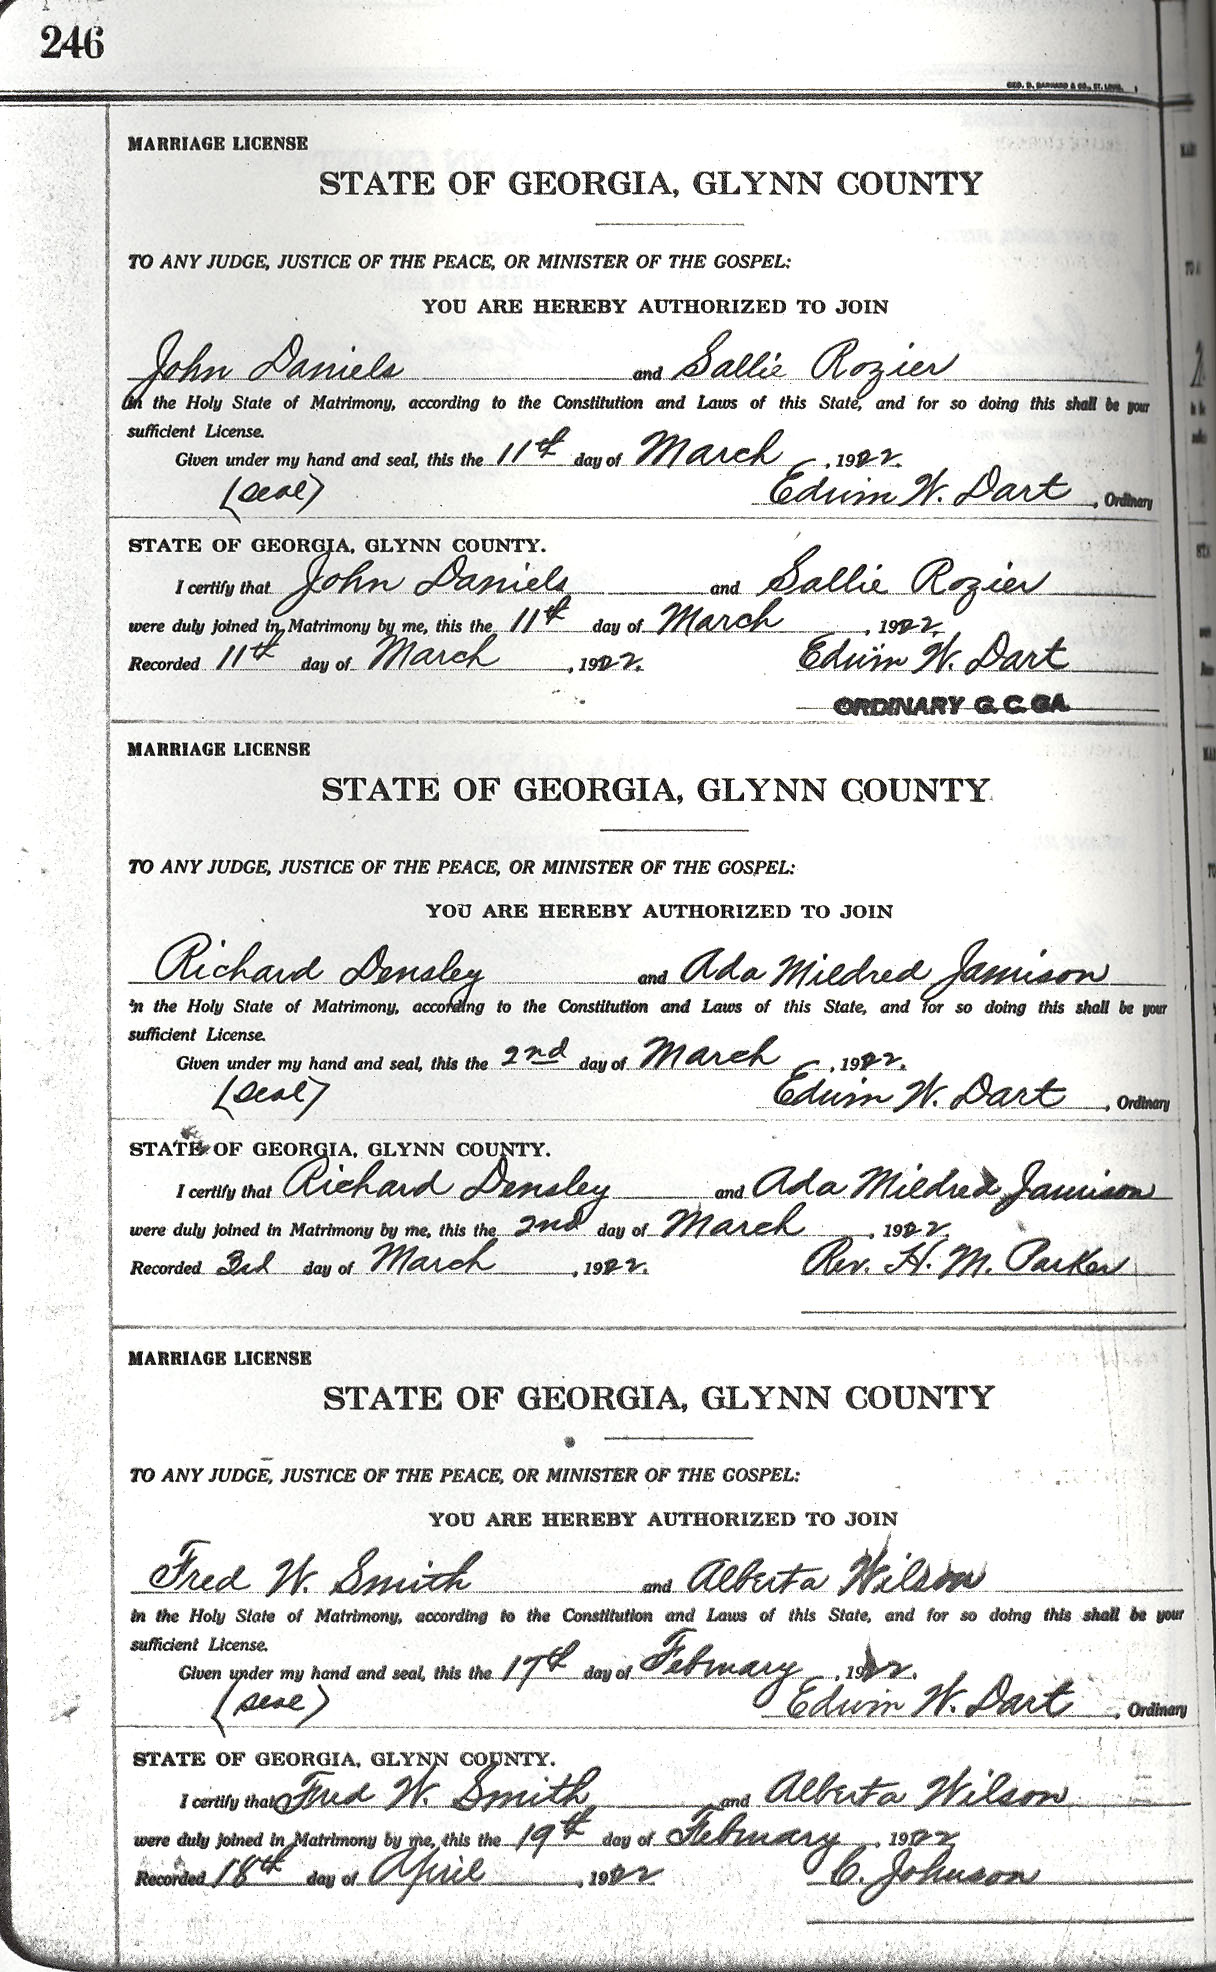 246
GEO. D. BARNARD & CO., ST. LOUIS.
MARRIAGE LICENSE
STATE OF GEORGIA, GLYNN COUNTY
TO ANY JUDGE, JUSTICE OF THE PEACE, OR MINISTER OF THE GOSPEL:
YOU ARE HEREBY AUTHORIZED TO JOIN
John Daniels and Sallie Rozier
in the Holy State of Matrimony, according to the Constitution and Laws of this State, and for so doing this shall be your
sufficient License.
Given under my hand and seal, this the 11th day of March, 1922.
(seal) Edwin W. Dart, Ordinary
STATE OF GEORGIA, GLYNN COUNTY.
I certify that John Daniels and Sallie Rozier
were duly joined in Matrimony by me, this the 11th day of March, 1922.
Recorded 11th day of March, 1922. Edwin W. Dart
ORDINARY G. C. GA.
MARRIAGE LICENSE
STATE OF GEORGIA, GLYNN COUNTY
TO ANY JUDGE, JUSTICE OF THE PEACE, OR MINISTER OF THE GOSPEL:
YOU ARE HEREBY AUTHORIZED TO JOIN
Richard Densley and Ada Mildred Jamison
in the Holy State of Matrimony, according to the Constitution and Laws of this State, and for so doing this shall be your
sufficient License.
Given under my hand and seal, this the 2nd day of March, 1922.
(seal) Edwin W. Dart, Ordinary
STATE OF GEORGIA, GLYNN COUNTY.
I certify that Richard Densley and Ada Mildred Jamison
were duly joined in Matrimony by me, this the 2nd day of March, 1922
Recorded 3rd day of March, 1922. Rev. H. M. Parker
MARRIAGE LICENSE
STATE OF GEORGIA, GLYNN COUNTY
TO ANY JUDGE, JUSTICE OF THE PEACE, OR MINISTER OF THE GOSPEL:
YOU ARE HEREBY AUTHORIZED TO JOIN
Fred W. Smith and Alberta Wilson
in the Holy State of Matrimony, according to the Constitution and Laws of this State, and for so doing this shall be your
sufficient License.
Given under my hand and seal, this the 17th day of February, 1922.
(seal) Edwin W. Dart, Ordinary
STATE OF GEORGIA, GLYNN COUNTY.
I certify that Fred W. Smith and Alberta Wilson
were duly joined in Matrimony by me, this the 19th day of February, 1922
Recorded 18th day of April, 1922 C. Johnson